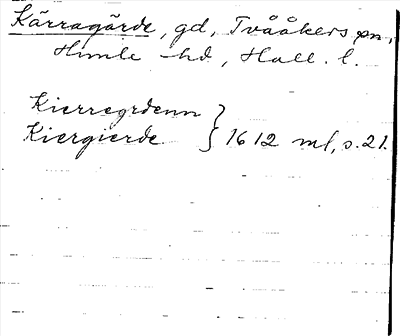 Kärragärde, gd, Tvååkers sn,
Himle hd, Hall. l.
Kierregrdenn
Kiergierde } 1612 ml, s. 21.